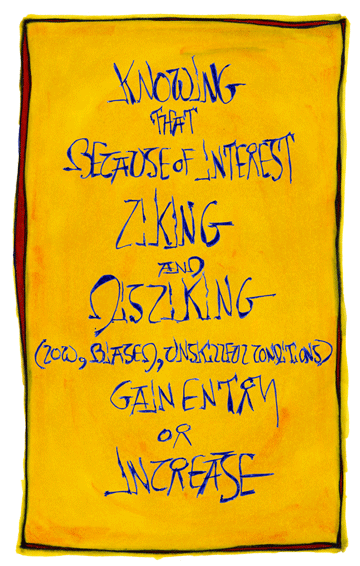 KNOWING
THAT
BECAUSE OF INTEREST
LIKING
AND
DISLIKING
(LOW, BIASED, UNSKILLFUL CONDITIONS)
GAIN ENTRY
OR
INCREASE